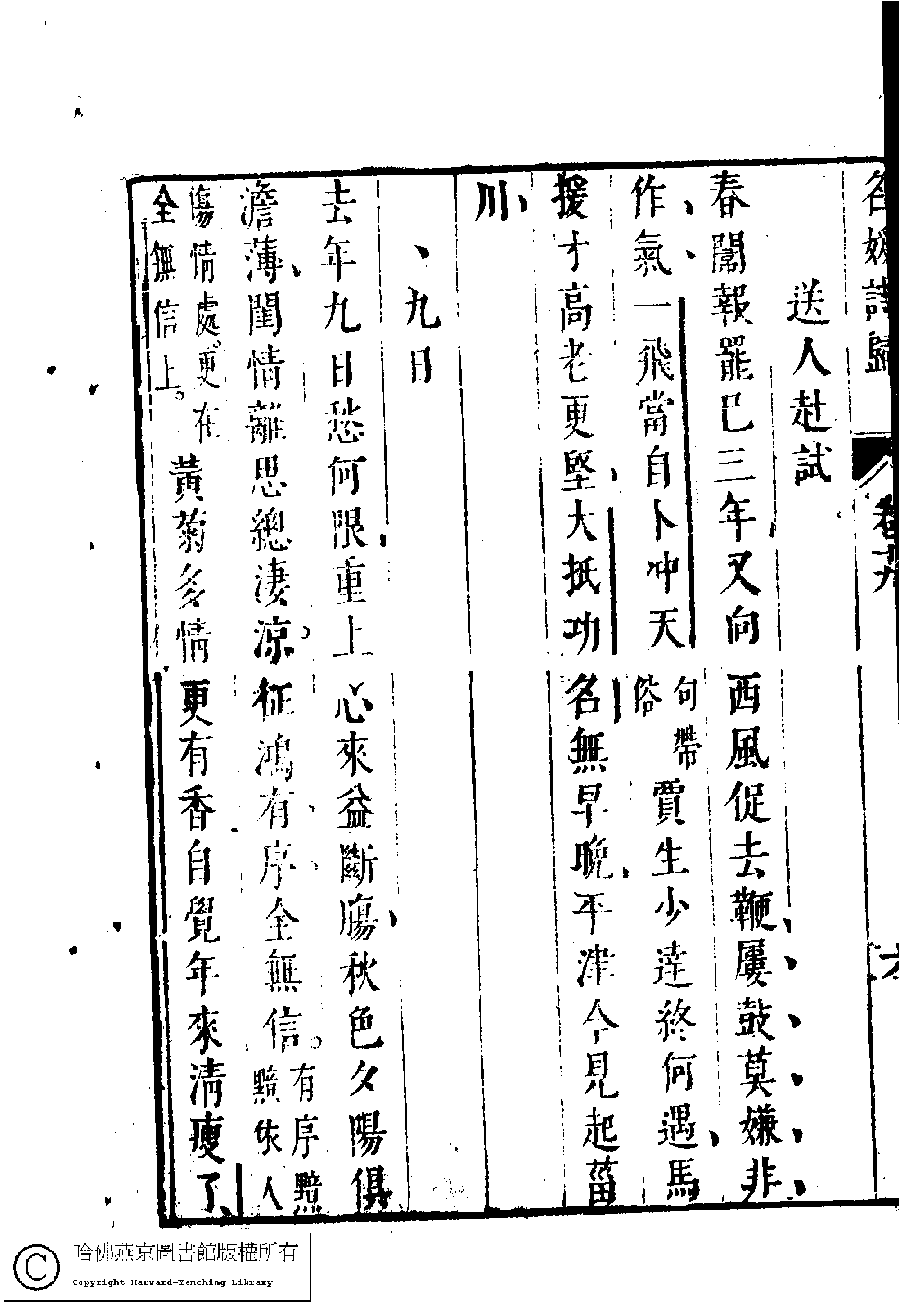 名媛詩歸
卷十九
送人赴試
春闈報罷已三年又向西風促去鞭屢鼓莫嫌非
作氣一飛當自卜冲天句帶俗賈生少達終何遇馬
援才高老更堅大抵功名無早晚平津今見起菑
川
九日
去年九日愁何限重上心來益斷腸秋色夕陽俱
澹薄閨情離思總淒涼征鴻有序全無信有序黯黯依人
傷情處更在全無信上黃菊多情更有香自覺年來清瘦了
哈佛燕京圖書館版權所有
Copyright Harvard-Yenching Library